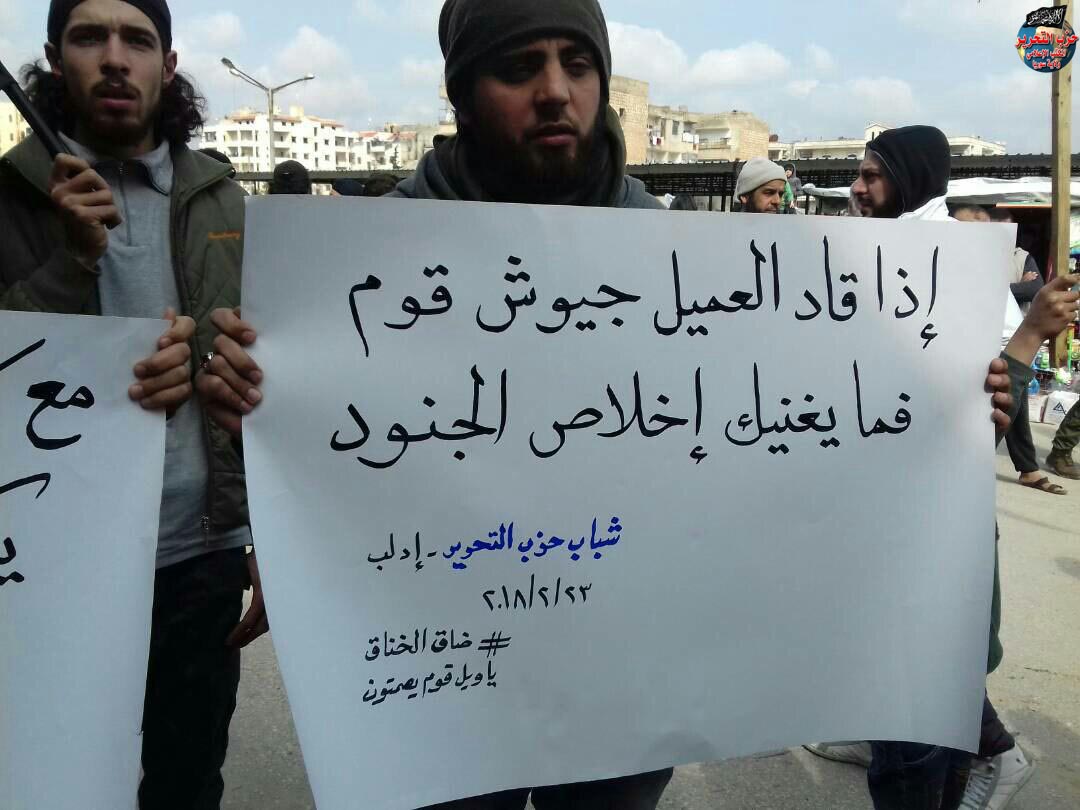 إذا قاد العميل جيوش قوم
فما يغنيك إخلاص الجنود
شباب حزب التحرير - إدلب
٢٠١٨/٢/٢٣
# ضاق الخناق
ياويل قوم يصمتون
مع
حزب التحرير
المكتب الإعلامي
ولاية سوريا